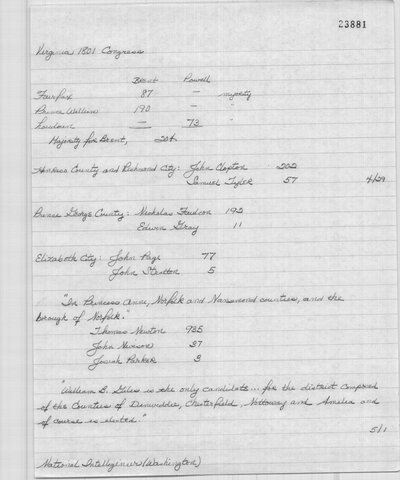 23881
Virginia 1801 Congress
Brent Powell
Fairfax 87 — majority
Prince William 190 — "
Loudoun — 73 "
Majority for Brent, 204
Henrico County and Richmond City: John Clopton 202
Samuel Tyler 57 4/29
Prince George County: Nicholas Faulcon 192
Edwin Gray 11
Elizabeth City: John Page 77
John Stratton 5
"In Princess Anne, Norfolk and Nansemond counties, and the
borough of Norfolk."
Thomas Newton 985
John Nivison 37
Josiah Parker 3
"William B. Giles is the only candidate... for the district composed
of the Counties of Dinwiddie, Chesterfield, Nottoway and Amelia and
of course is elected."
5/1
National Intelligencer (Washington)